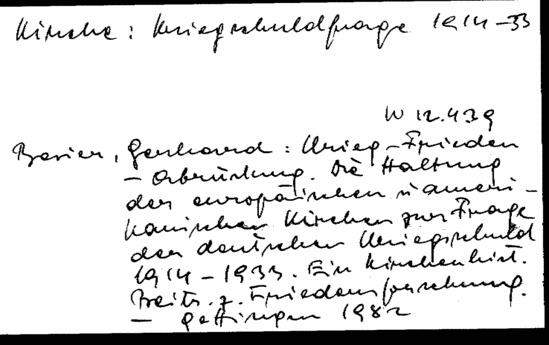 Kirche: Kriegsschuldfrage 1914-33
W 12.439
Besier, Gerhard: Krieg - Frieden
- Abrüstung. Die Haltung
der europäischen u. ameri-
kanischen Kirchen zur Frage
der deutschen Kriegsschuld
1914 - 1933. Ein kirchenhist.
Beitr. z. Friedensforschung.
- Göttingen 1982